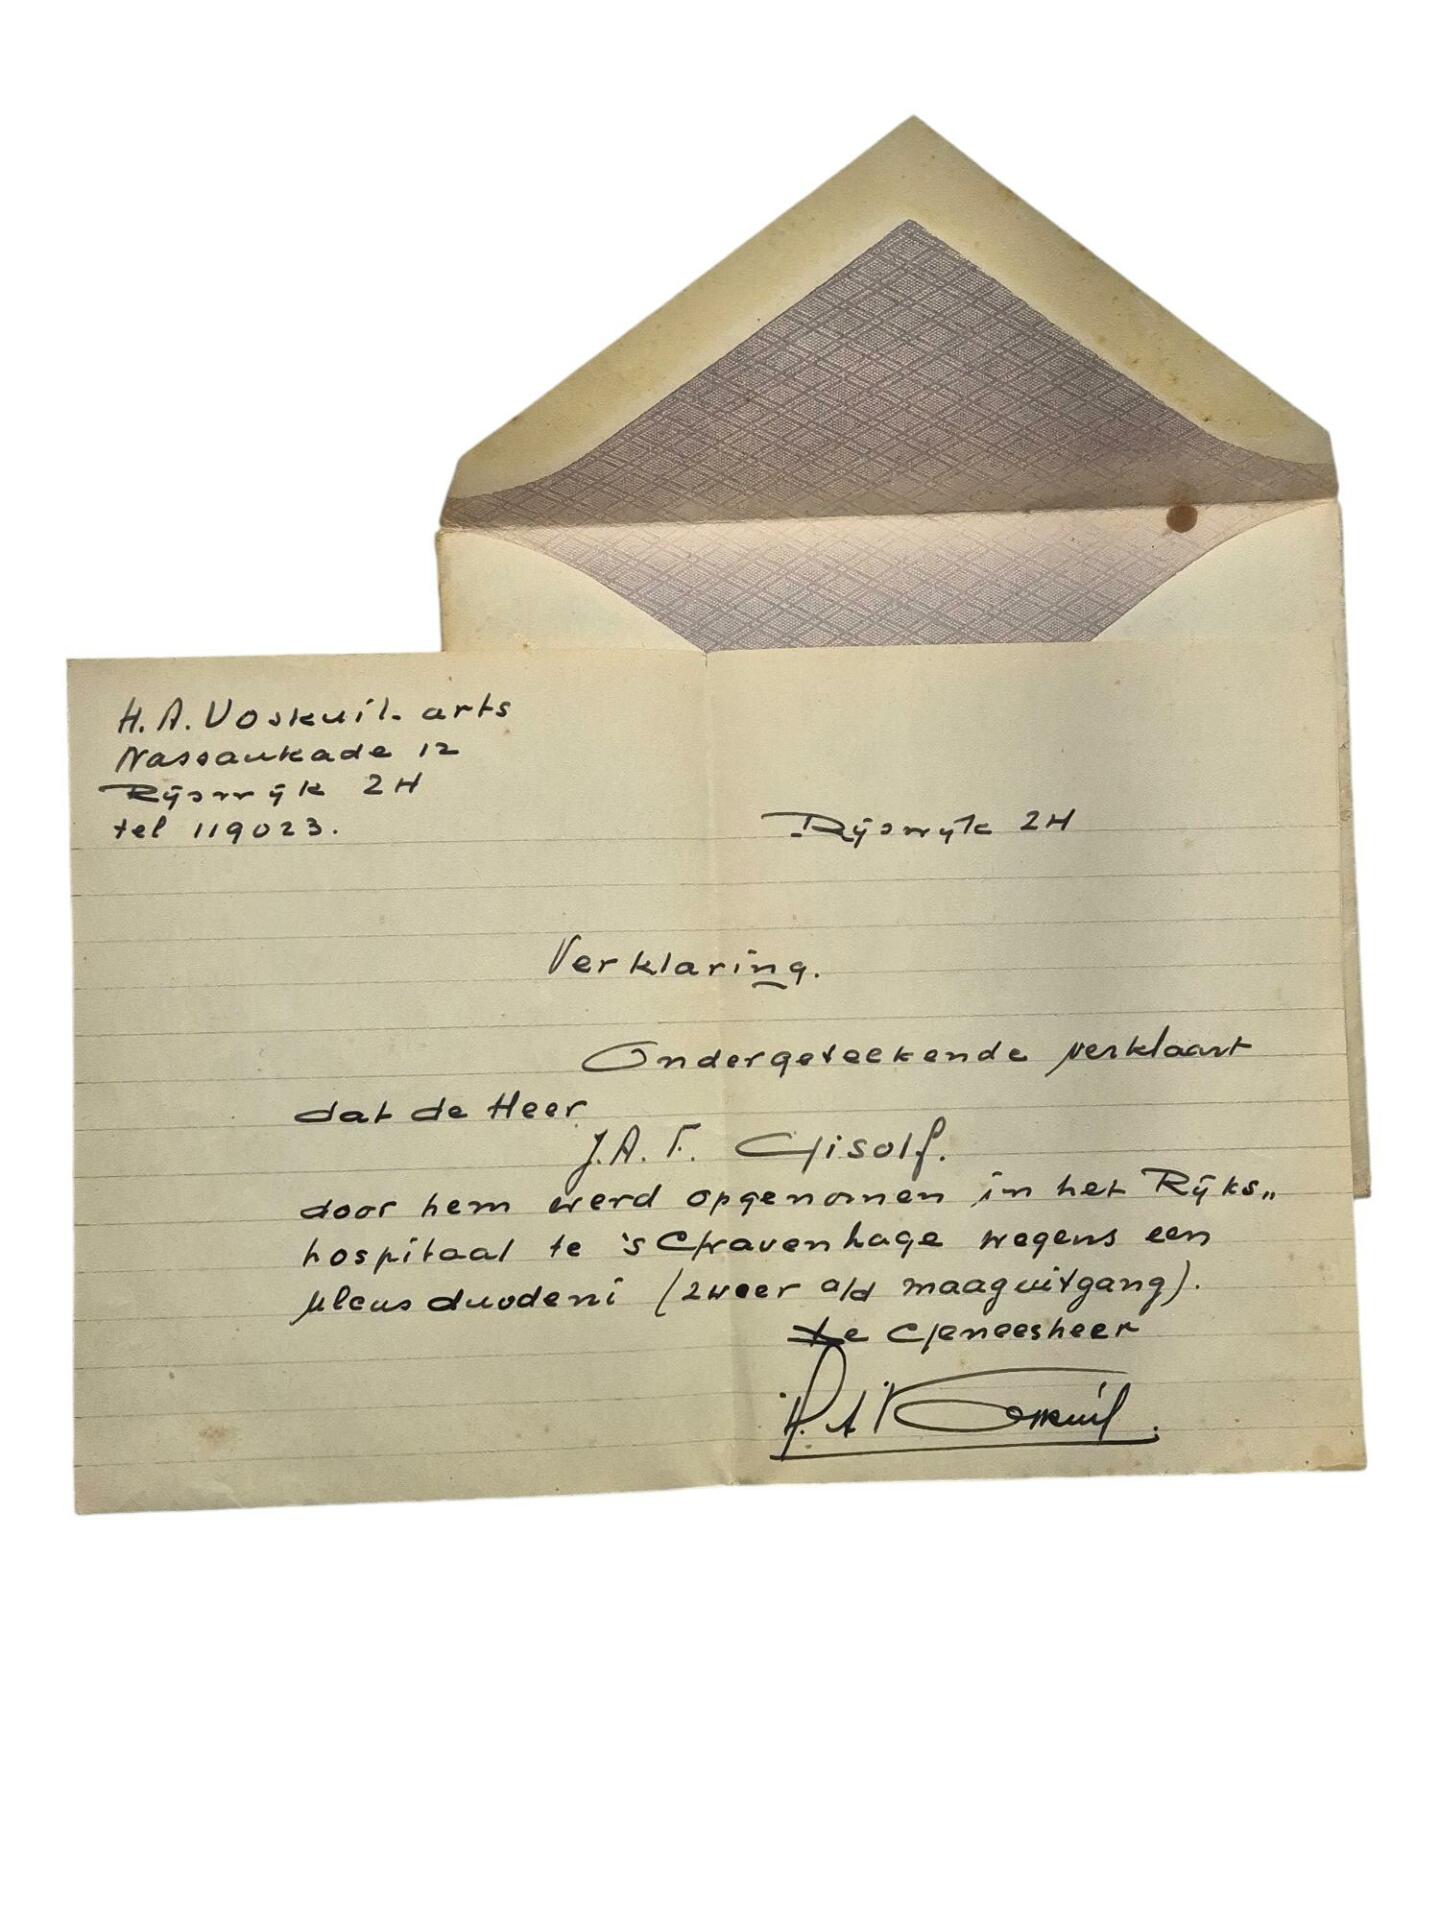 H. A. Voskuil. arts
Nassaukade 12
Rijswijk ZH
tel 119023.
Rijswijk ZH
Verklaring.
Ondergeteekende verklaart
dat de Heer
J. A. F. Gisolf.
door hem werd opgenomen in het Rijks„
hospitaal te 's Gravenhage wegens een
ulcus duodeni (zweer a/d maaguitgang).
de Geneesheer
H. A. Voskuil.